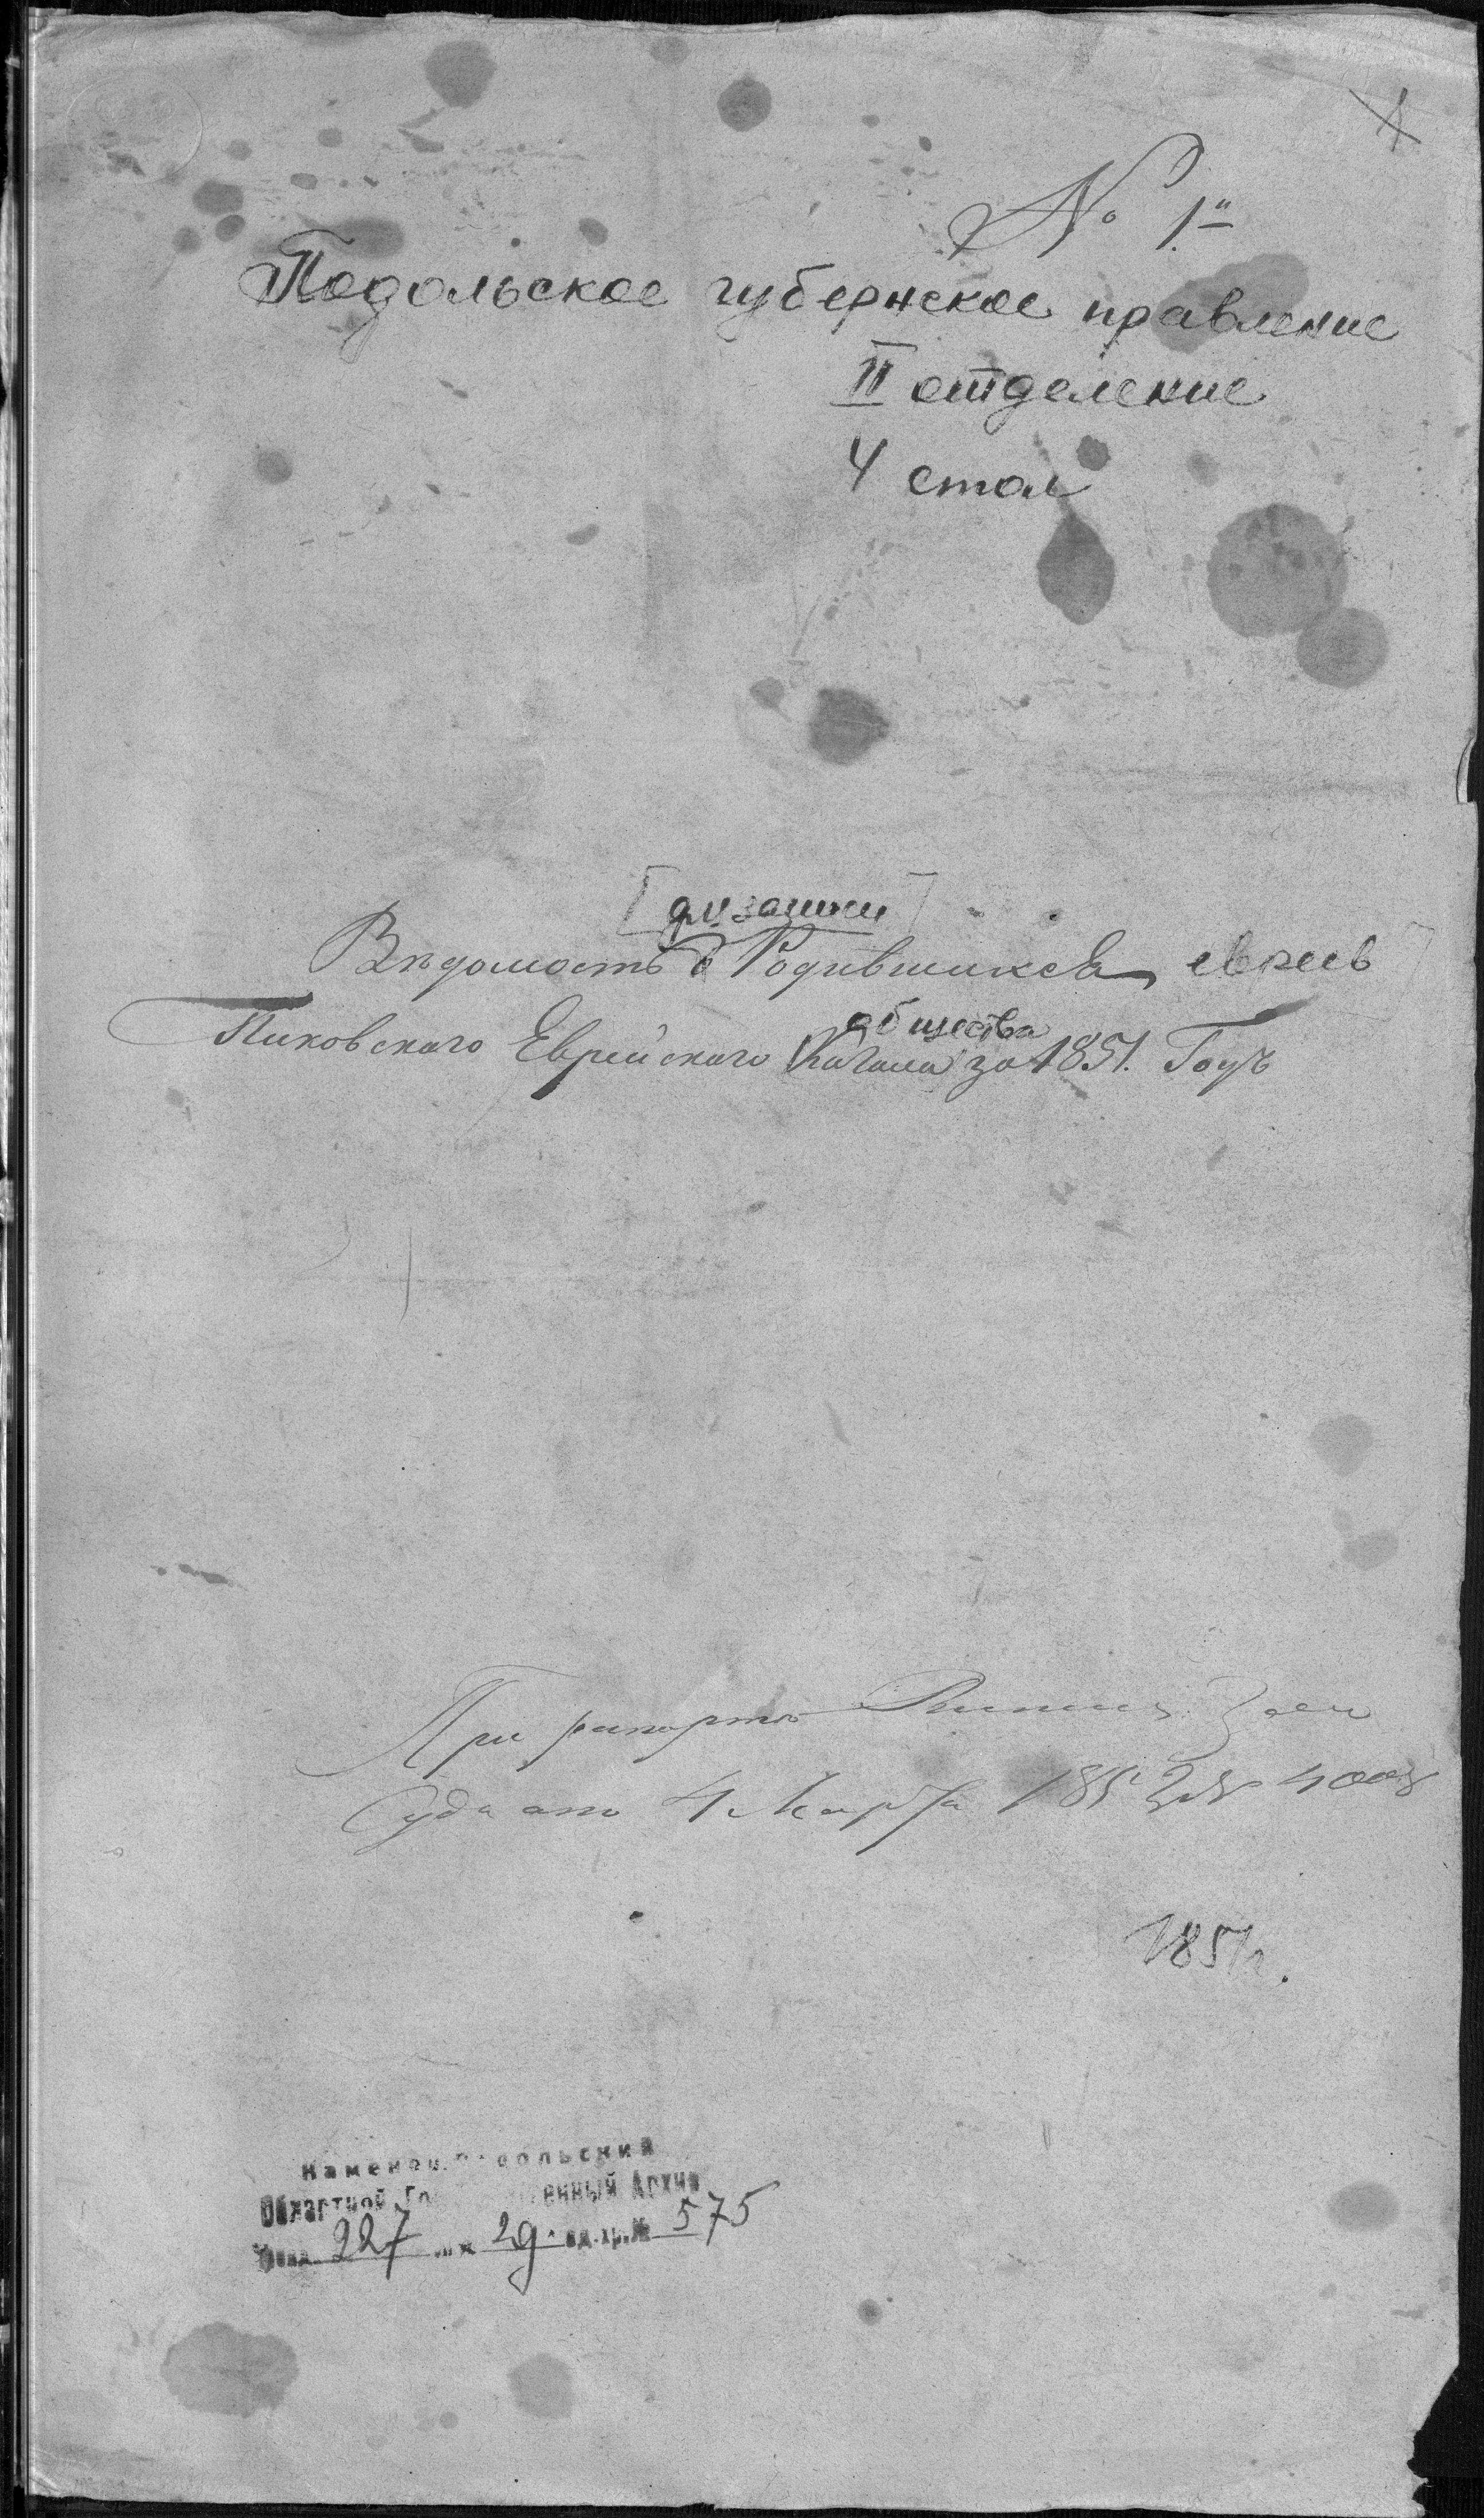 № 1й
Подольское губернское правление
II отделение
4 стол
[для записи]
Вѣдомость о Родившихся евреев
Пиковского Еврейского Кагала общества за 1851. Годъ
При рапортѣ Винниц. Зем
Суда от 4 Марта 1852 №
1851 г.
Каменец-Подольский
Областной Государственный Архив
Фонд 227 оп. № 2д. ед.хр.№ 575